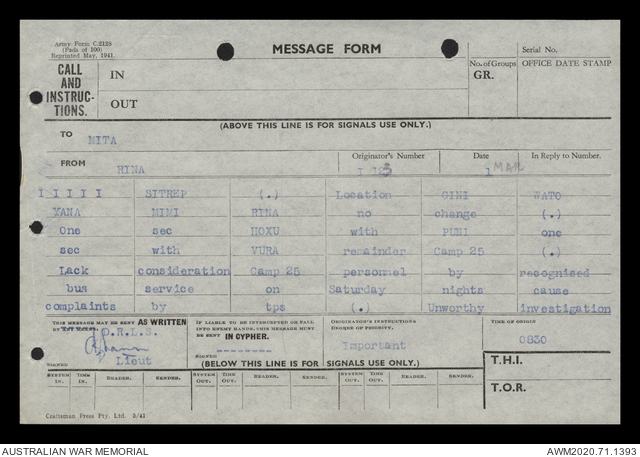 Army Form C.2128
(Pads of 100)
Reprinted May, 1941.
MESSAGE FORM
Serial No.
CALL AND INSTRUC-TIONS.
IN
OUT
No. of Groups
GR.
OFFICE DATE STAMP
(ABOVE THIS LINE IS FOR SIGNALS USE ONLY.)
TO MITA
FROM HINA
Originator's Number
Date
In Reply to Number.
1 MAR
I I I I I SITREP (.) Location GINI WATO
YANA MIMI RINA no change (.)
One sec HOXU with PUNI one
sec with VURA remainder Camp 25 (.)
Lack consideration Camp 25 personnel by recognised
bus service on Saturday nights cause
complaints by tps (.) Unworthy investigation
THIS MESSAGE MAY BE SENT AS WRITTEN BY ANY MEANS.
D.R.L.S.
SIGNED
Lieut
IF LIABLE TO BE INTERCEPTED OR FALL INTO ENEMY HANDS, THIS MESSAGE MUST BE SENT IN CYPHER.
SIGNED
ORIGINATOR'S INSTRUCTIONS
DEGREE OF PRIORITY.
Important
TIME OF ORIGIN
0830
(BELOW THIS LINE IS FOR SIGNALS USE ONLY.)
T.H.I.
T.O.R.
SYSTEM IN. TIME IN. READER. SENDER. SYSTEM OUT. TIME OUT. READER. SENDER. SYSTEM OUT. TIME OUT. READER. SENDER.
Craftsman Press Pty. Ltd. 5/41
AUSTRALIAN WAR MEMORIAL
AWM2020.71.1393